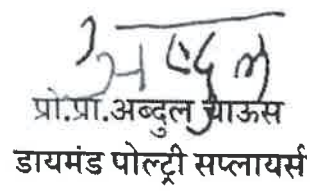 अब्दुल
प्रो.प्रा.अब्दुल चाऊस
डायमंड पोल्ट्री सप्लायर्स